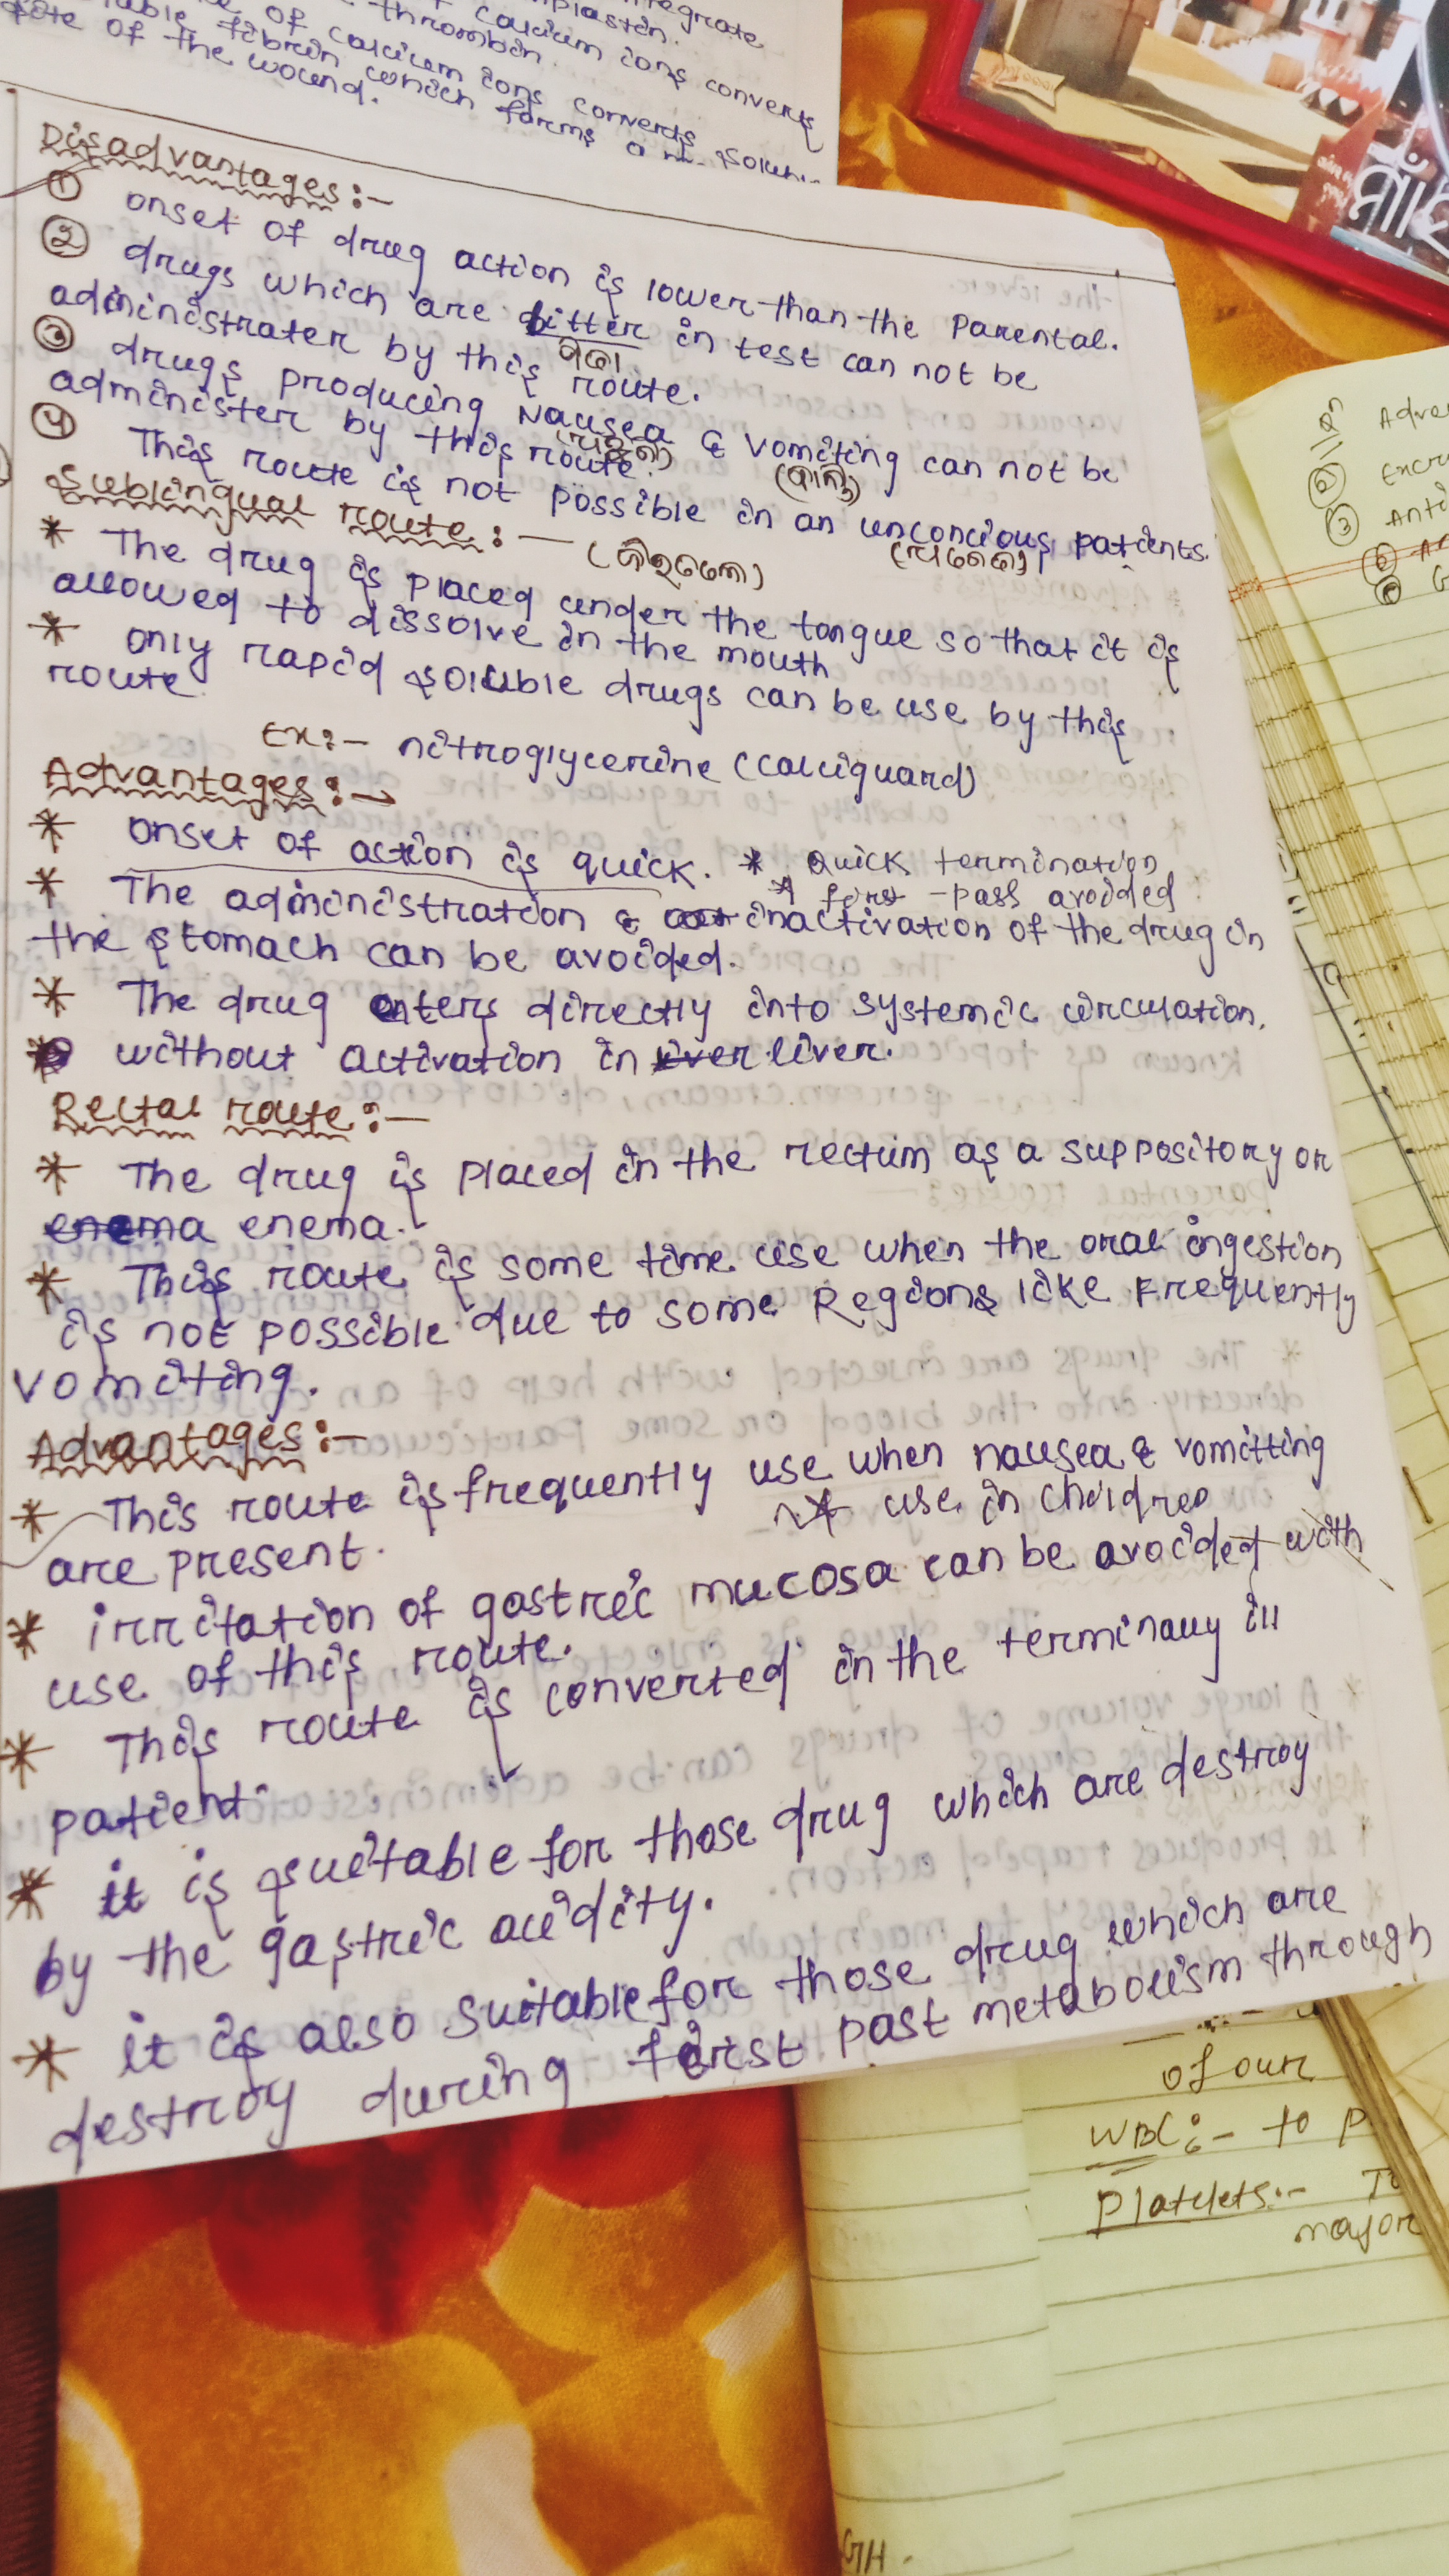 thrombin.
of calcium ions converts
fibrin which forms a
of the wound.
Disadvantages:-
① onset of drug action is lower than the Parental.
② drugs which are bitter in test can not be
ପିତା
administrater by this route.
③ drugs producing Nausea & vomiting can not be
(ବାନ୍ତି)
administer by this route.
④ This route is not possible in an unconcious patients.
Sublingual route:- (ଜିଭତଳେ)
* The drug is placed under the tongue so that it is
allowed to dissolve in the mouth
* only rapid soluble drugs can be use by this
route.
Ex:- nitroglycerine (calciguard)
Advantages:→
* onset of action is quick. * Quick termination
* first-pass avoided
* The administration & inactivation of the drug in
the stomach can be avoided.
* The drug enters directly into systemic circulation.
without activation in liver.
Rectal route:-
* The drug is placed in the rectum as a suppository or
enema enema.
* This route is some time use when the oral ingestion
is not possible due to some Regions like Frequently
vomiting.
Advantages:-
* This route is frequently use when nausea & vomitting
* use in children
are present.
* irritation of gastric mucosa can be avoided with
use of this route.
* This route is converted in the terminally ill
patient.
* it is suitable for those drug which are destroy
by the gastric acidity.
* it is also suitable for those drug which are
destroy during first past metabolism through
③ Anti
of our
WBC:- to P
Platelets:- To
major
GH.